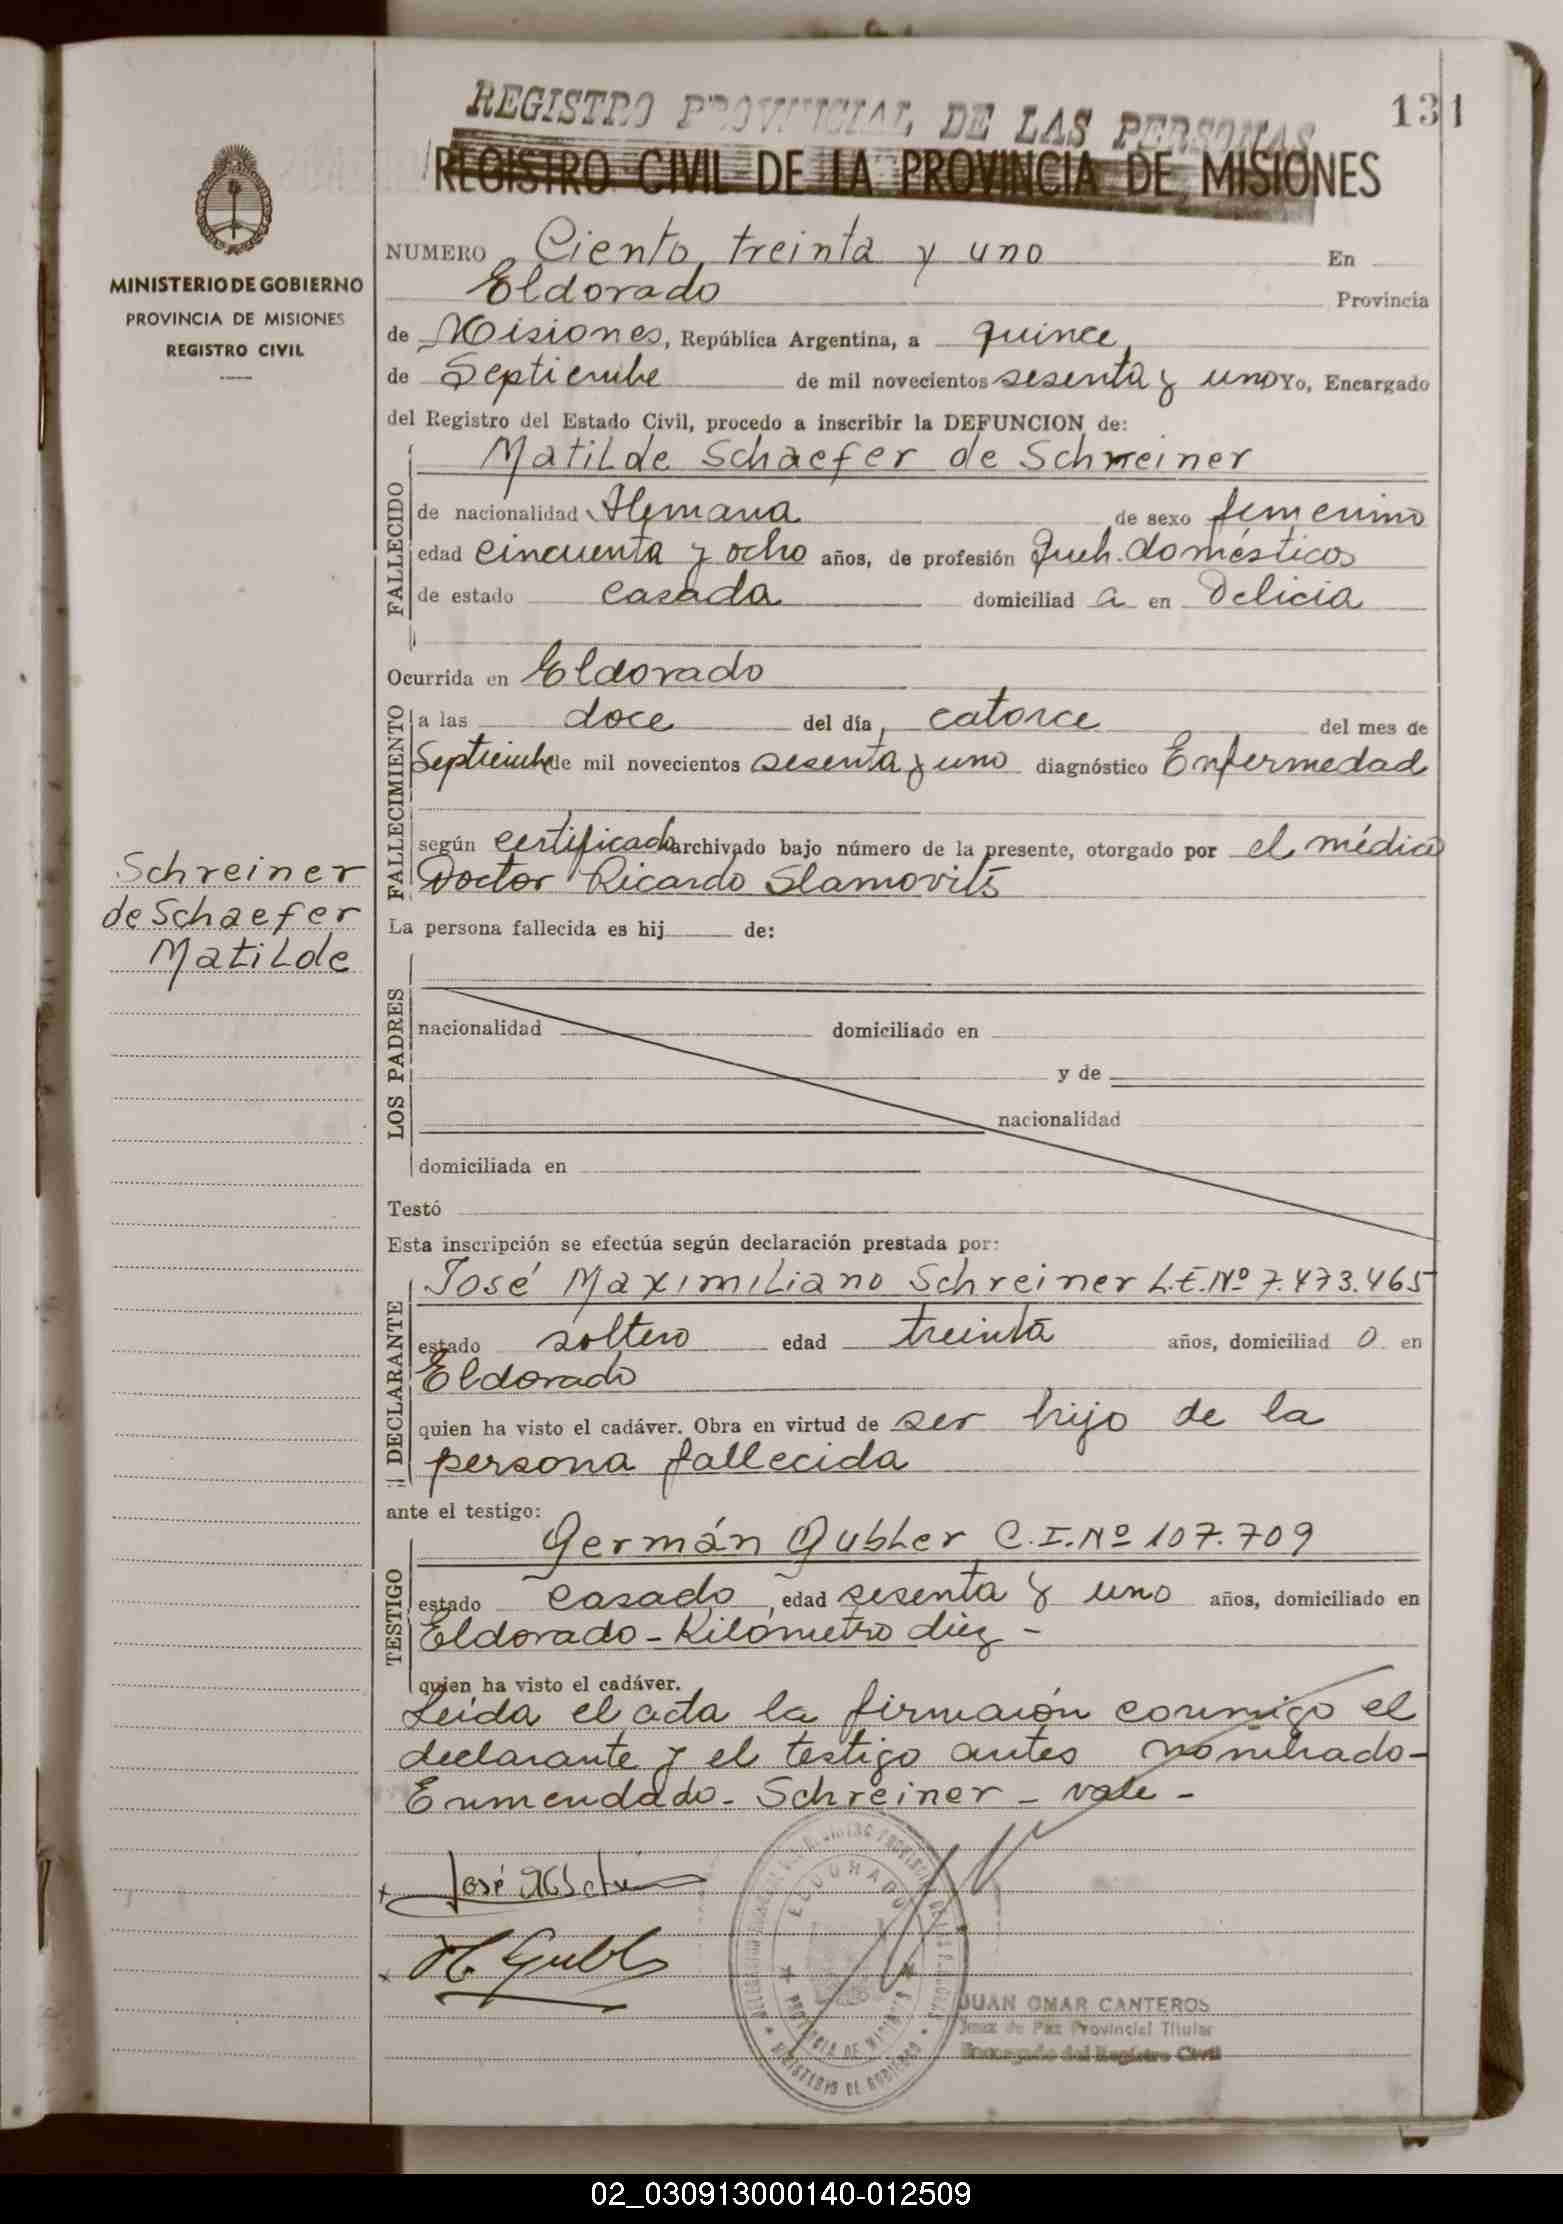 REGISTRO PROVINCIAL DE LAS PERSONAS
131
REGISTRO CIVIL DE LA PROVINCIA DE MISIONES
MINISTERIO DE GOBIERNO
PROVINCIA DE MISIONES
REGISTRO CIVIL
Schreiner
de Schaefer
Matilde
NUMERO Ciento treinta y uno En
Eldorado Provincia
de Misiones, República Argentina, a quince
de Septiembre de mil novecientos sesenta y uno Yo, Encargado
del Registro del Estado Civil, procedo a inscribir la DEFUNCION de:
Matilde Schaefer de Schreiner
FALLECIDO
de nacionalidad Alemana de sexo femenino
edad cincuenta y ocho años, de profesión Queh. domésticos
de estado casada domiciliad a en Delicia
Ocurrida en Eldorado
FALLECIMIENTO
a las doce del día, catorce del mes de
Septiembre de mil novecientos sesenta y uno diagnóstico Enfermedad
según certificado archivado bajo número de la presente, otorgado por el médico
Doctor Ricardo Slamovits
La persona fallecida es hij de:
LOS PADRES
nacionalidad domiciliado en
y de
nacionalidad
domiciliada en
Testó
Esta inscripción se efectúa según declaración prestada por:
DECLARANTE
José Maximiliano Schreiner L.E.Nº 7.473.465
estado soltero edad treinta años, domiciliad o en
Eldorado
quien ha visto el cadáver. Obra en virtud de ser hijo de la
persona fallecida
ante el testigo:
TESTIGO
Germán Gubler C.I.Nº 107.709
estado casado, edad sesenta y uno años, domiciliado en
Eldorado - Kilómetro diez -
quien ha visto el cadáver.
Leída el acta la firmaron conmigo el
declarante y el testigo antes nombrado-
Enmendado - Schreiner - vale -
José
Gubl
ELDORADO
PROVINCIA DE MISIONES
MINISTERIO DE GOBIERNO
JUAN OMAR CANTEROS
Juez de Paz Provincial Titular
Encargado del Registro Civil
02_030913000140-012509